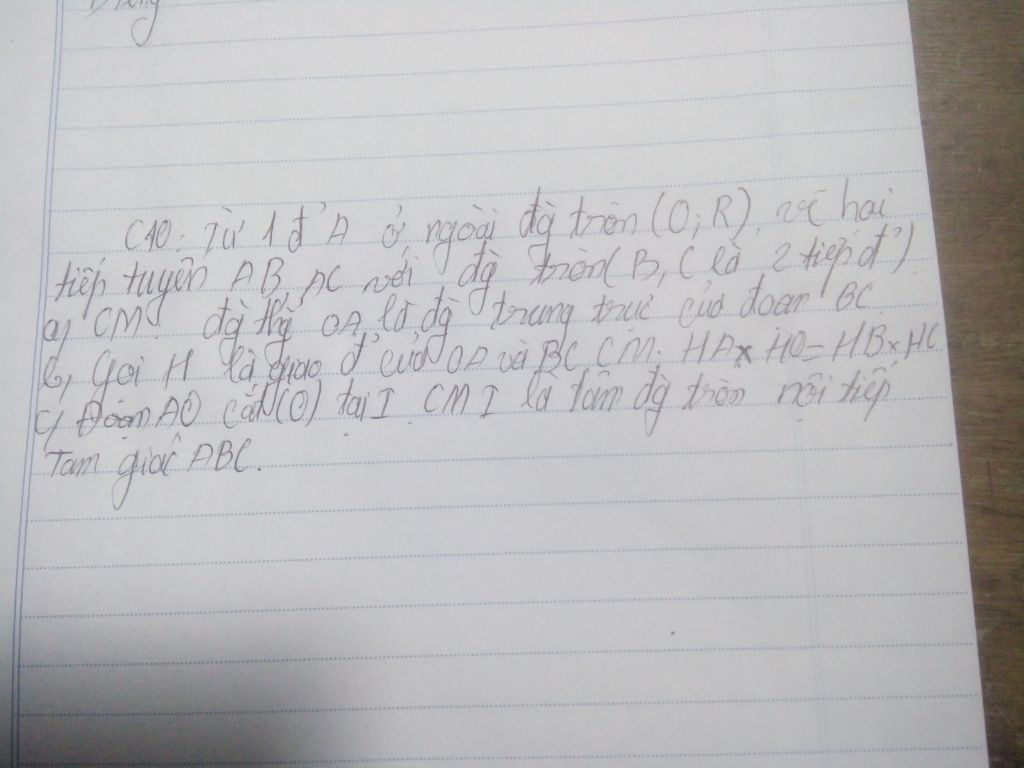 C10: Từ 1 đ' A ở ngoài đg tròn (O; R), vẽ hai
tiếp tuyến AB, AC với đg tròn (B, C là 2 tiếp đ')
a, CM: đg thg OA là đg trung trực của đoạn BC.
b, Gọi H là giao đ' của OA và BC, CM: HA x HO = HB x HC
c, Đoạn AO cắt (O) tại I. CM I là tâm đg tròn nội tiếp
Tam giác ABC.